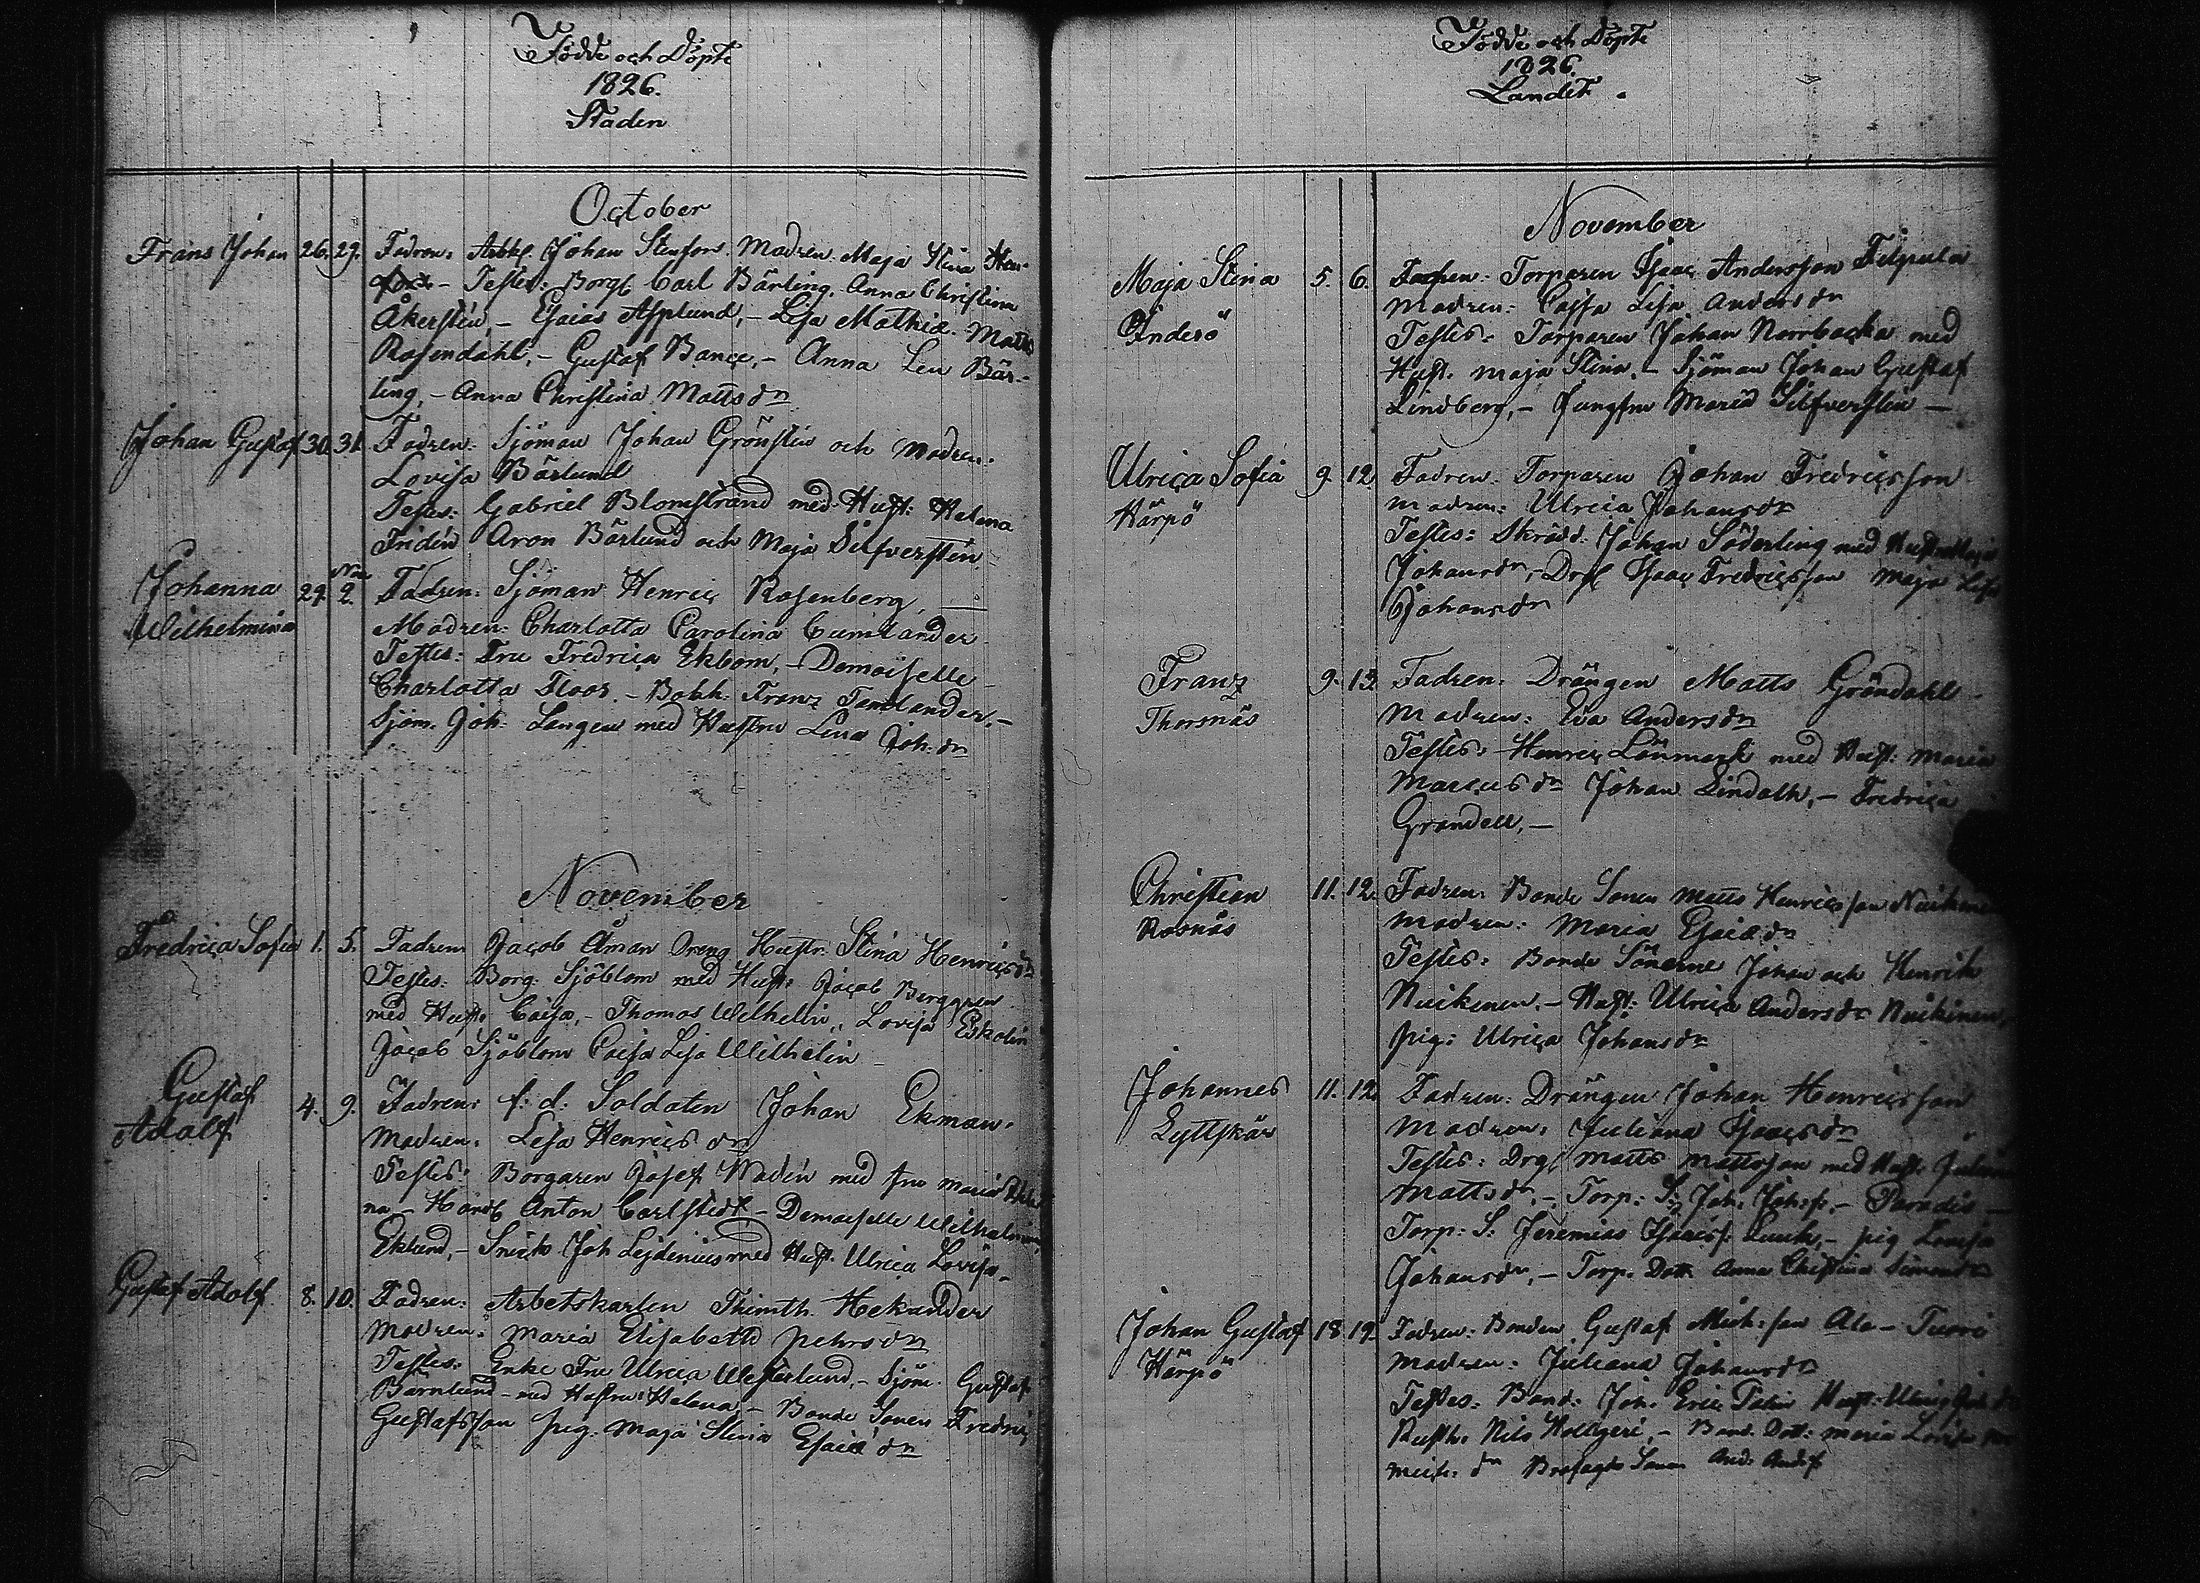 Födde och Döpte
1826.
Staden
October
Frans Johan 26. 29. Fadren: Arbk. Johan Stenfors. Madren. Maja Stina
Testes: Borg. Carl Bärling. Anna Christina
Åkerstén, – Esaias Asplund, – Lisa Mathiæ. Matts
Rosendahl, – Gustaf Bance, – Anna Len Bär-
ling, – Anna Christina Mattsdn
Johan Gustaf 30. 31. Fadren: Sjöman Johan Grönstén och Modren.
Lovisa Bärlund
Testes: Gabriel Blomstrand med Hust: Helena
Fridén Aron Bärlund och Maja Silfverstén
Johanna 29. Nov. 2. Fadren: Sjöman Henric Rosenberg, —
Wilhelmina Modren: Charlotta Carolina
Testes: Fru Fredrica Ekbom, – Demoiselle
Charlotta Floor. – Bokh. Franz Tamlander, –
Sjöm. Joh. Langen med Hustru Lena Joh. dn
November
Fredrica Sofia 1. 5. Fadren Jacob Åman Dreng Hustr. Stina Henricsdn
Testes: Borg. Sjöblom med Hust: Jacob Berggren
med Hust: Caisa, – Thomas Wilhelin, Lovisa Eskolin
Jacob Sjöblom Caisa Lisa Wilhelin –
Gustaf
Adolf 4. 9. Fadren: f: d: Soldaten Johan Ekman.
Madren: Lisa Henrics dn
Testes: Borgaren Josef Wadén med fru Maria
na – Handl. Anton Carlstedt – Demoiselle Wilhelmina
Eklund, – Snick. Joh Lejdenius med Hust. Ulrica Lovisa –
Gustaf Adolf 8. 10. Fadren: Arbetskarlen Thimth. Hekander
Modren: Maria Elisabeth Pehrsdn
Testes: Enke Fru Ulrica Westerlund, – Sjöm. Gustaf
Barnlund – med Hustru: Helena – Bonde Sonen Fredric
Gustafsson pig. Maja Stina Esaiædn
Födde och Döpte
1826.
Landet.
November
Maja Stina 5. 6. Fadren: Torparen Isaac Andersson Filpula
Änderö Madren: Caisa Lisa Andersdn
Testes. Torparen Johan Norrbacka med
Hust. Maja Stina. – Sjöman Johan Gustaf
Lindberg, – Jungfru Maria Silfverstén –
Ulrica Sofia 9. 12. Fadren. Torparen Johan Fredricsson
Härpö Madren: Ulrica Johansdn
Testes: Skrädd. Johan Söderling med Hustru Maja
Johansdn, – Drg. Isaac Fredricsson Maja Lisa
Johansdn
Franz 9. 12. Fadren: Drängen Matts Gröndahl –
Thorsnäs Madren: Eva Andersdn
Testes: Henric Lönmark med Hust: Maria
Marcusdn Johan Lindath, – Fredrica
Grandell, –
Christian 11. 12. Fadren: Bonde Sonen Matts Henricsson Nuikinen
Rosnäs Madren: Maria Esaiædn
Testes: Bonde Sönerne Johan och Henrik
Nuikinen. – Hust: Ulrica Andersdn Nuikinen,
pig: Ulrica Johansdn
Johannes 11. 12. Fadren: Drängen Johan Henricsson
Lyttskär Madren: Juliana Isaacsdn
Testes: Drg. Matts Mattsson med Hust: Juliana
Mattsdn, – Torp: S: Joh: Joh:s. – Paradis –
Torp: S: Jeremias Isaacs: Luuk, – pig Lovisa
Johansdn, – Torp. Dott: Anna Christina Simonsdn
Johan Gustaf 18. 19. Fadren: Bonden Gustaf Mich:son Ala-Tuori
Härpö Madren: Juliana Johansdn
Testes: Bond: Joh: Eric Hust: Ulrica
Rusth. Nils Hollgeri, – Bond. Dott: Maria Lovisa
Mich: dn Sonen And: